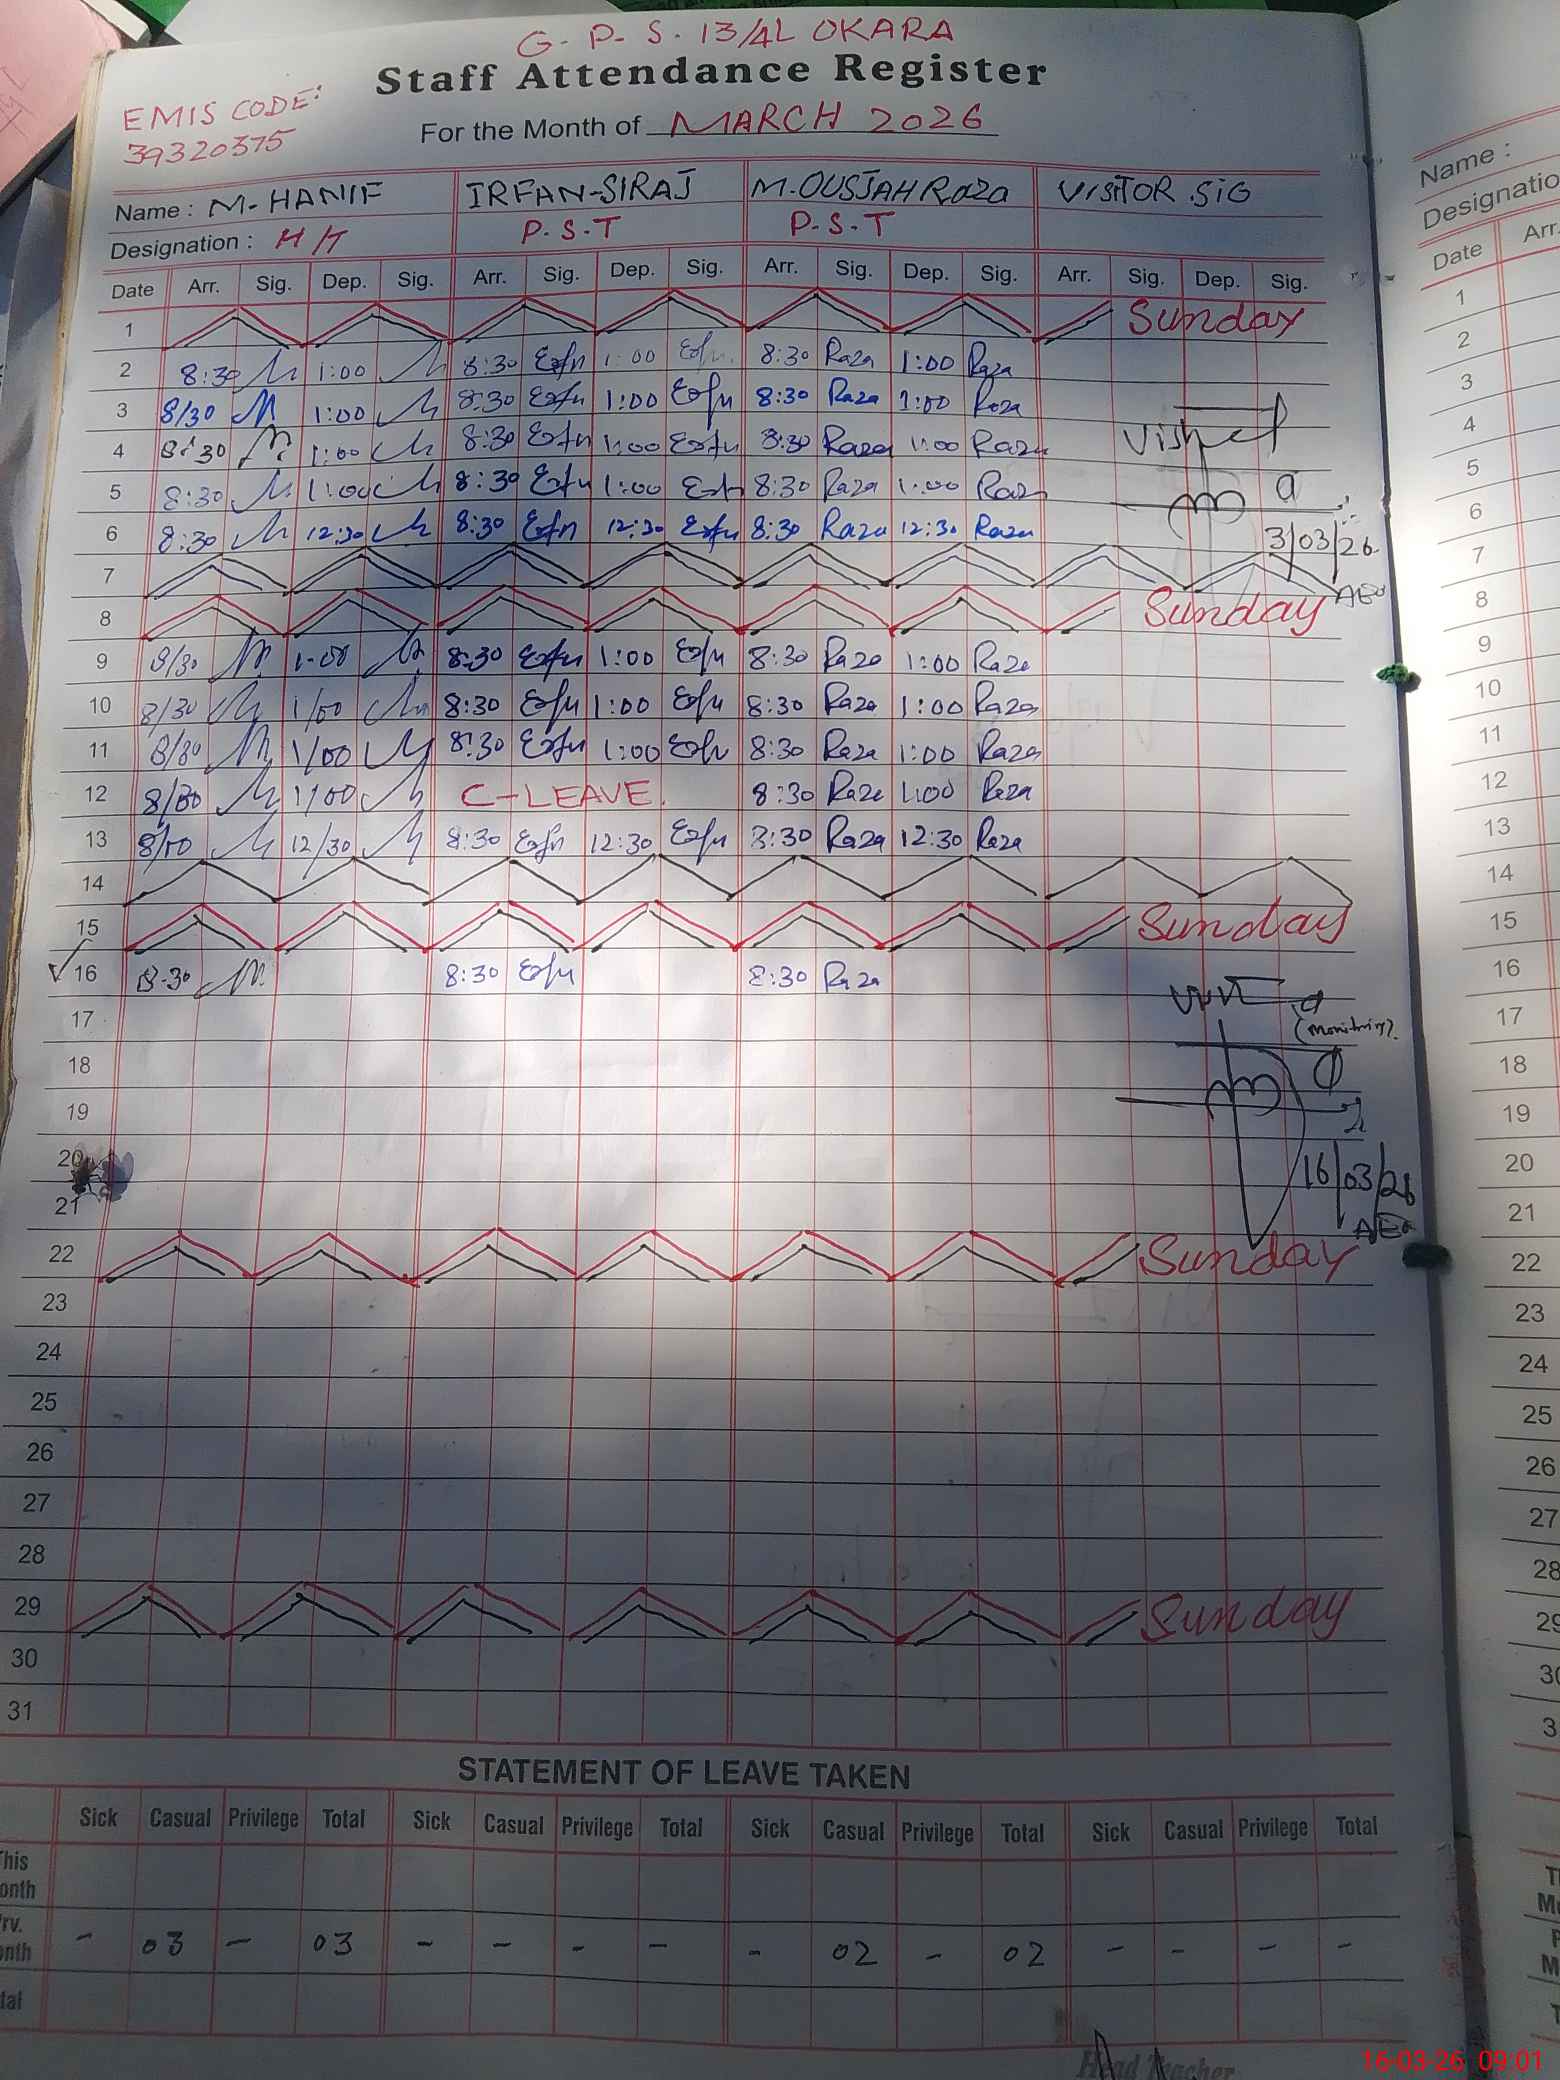 G. P. S. 13/4L OKARA
Staff Attendance Register
EMIS CODE:
39320375
For the Month of MARCH 2026
Name : M-HANIF IRFAN-SIRAJ M.OUSJAH Raza VISITOR SIG
Designation : H/T P.S.T P.S.T
Date Arr. Sig. Dep. Sig. Arr. Sig. Dep. Sig. Arr. Sig. Dep. Sig. Arr. Sig. Dep. Sig.
1 Sunday
2 8:30 1:00 8:30 1:00 8:30 Raza 1:00 Raza
3 8/30 1:00 8:30 1:00 8:30 Raza 1:00 Raza
4 8:30 1:00 8:30 1:00 8:30 Raza 1:00 Raza
5 8:30 1:00 8:30 1:00 8:30 Raza 1:00 Raza
6 8:30 12:30 8:30 12:30 8:30 Raza 12:30 Raza
3/03/26
AEO
7
8 Sunday
9 8/30 1-00 8:30 1:00 8:30 Raza 1:00 Raza
10 8/30 1/00 8:30 1:00 8:30 Raza 1:00 Raza
11 8/30 1/00 8:30 1:00 8:30 Raza 1:00 Raza
12 8/30 1/00 C-LEAVE. 8:30 Raza 1:00 Raza
13 12/30 8:30 12:30 8:30 Raza 12:30 Raza
14
15 Sunday
16 8-30 8:30 8:30 Raza
17
18
19
20
21
16/03/26
AEO
22 Sunday
23
24
25
26
27
28
29 Sunday
30
31
STATEMENT OF LEAVE TAKEN
Sick Casual Privilege Total Sick Casual Privilege Total Sick Casual Privilege Total Sick Casual Privilege Total
This
onth
rv. - 03 - 03 - - - - - 02 - 02 - - - -
nth
tal
Head Teacher
16-03-26 09:01
Name :
Designatio
Date Arr.
1
2
3
4
5
6
7
8
9
10
11
12
13
14
15
16
17
18
19
20
21
22
23
24
25
26
27
28
29
30
3